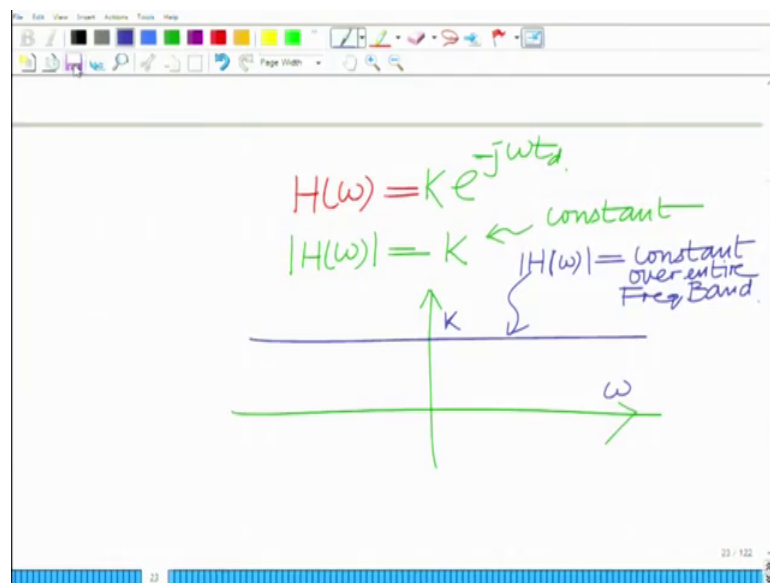 File Edit View Insert Actions Tools Help
Page Width
H(ω) = K e^{-jωt_d}.
|H(ω)| = K ← constant
|H(ω)| = constant
over entire
Freq Band.
K
ω
23 / 122
23